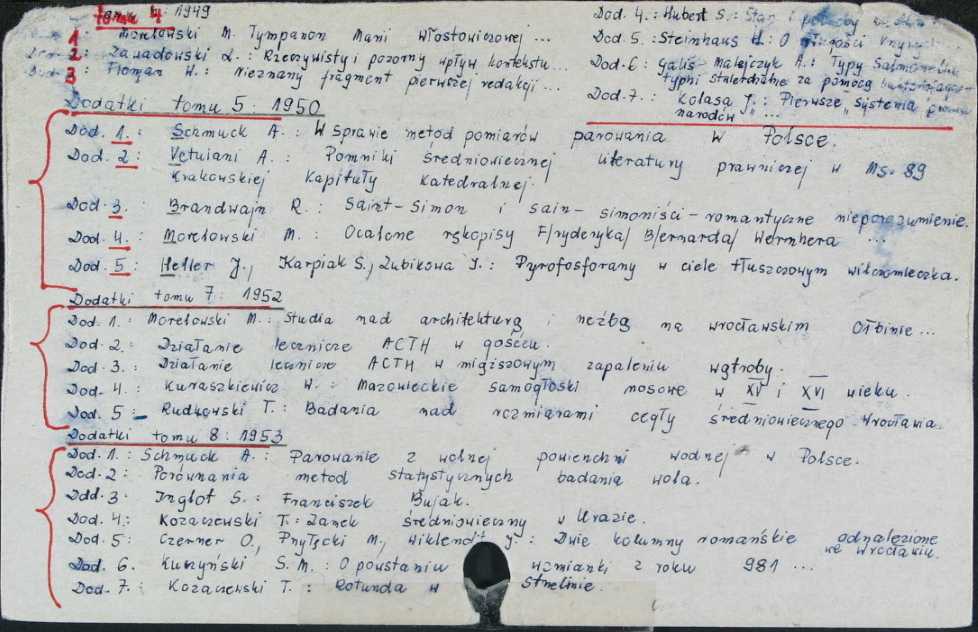 tomu 4: 1949
1: Morelowski M. Tympanon Marii Włostowicowej ...
2: Zawadowski L.: Rzeczywisty i pozorny wpływ kontekstu...
3: Floman W.: Nieznany fragment pierwszej redakcji ...
Dod. 4.: Hubert S.:
Dod. 5.: Steinhaus H.: O długości krzywych
Dod. 6: Galis Malejczyk A.: Typy
typni za pomocą
Dod. 7.: Kolasa J.: Pierwsze „systemia
narodów" ...
Dodatki tomu 5: 1950
Dod. 1.: Schmuck A.: W sprawie metod pomiarów parowania w Polsce.
Dod. 2: Vetulani A.: Pomniki średniowiecznej literatury prawniczej w Ms. 89
Krakowskiej Kapituły Katedralnej.
Dod. 3.: Brandwajn R.: Saint-Simon i sain-simoniści-romantyczne nieporozumienie.
Dod. 4.: Morelowski M.: Ocalone rękopisy F/ryderyka/ B/ernarda/ Wernhera ...
Dod. 5: Heller J., Karpiak S., Zubikowa J.: Pyrofosforany w ciele tłuszczowym wilczomleczka.
Dodatki tomu 7: 1952
Dod. 1.: Morelowski M.: Studia nad architekturą i rzeźbą na wrocławskim Ołbinie...
Dod. 2.: Działanie lecznicze ACTH w gośćcu.
Dod. 3.: Działanie lecznicze ACTH w miąższowym zapaleniu wątroby.
Dod. 4.: Kuraszkiewicz W.: Mazowieckie samogłoski nosowe w XV i XVI wieku.
Dod. 5: Rudkowski T.: Badania nad rozmiarami cegły średniowiecznego Wrocławia.
Dodatki tomu 8: 1953
Dod. 1.: Schmuck A.: Parowanie z wolnej powierzchni wodnej w Polsce.
Dod. 2: Porównania metod statystycznych badania wola.
Dod. 3. Inglot S.: Franciszek Bujak.
Dod. 4.: Kozaczewski T.: Zamek średniowieczny w Urazie.
Dod. 5: Czerner O., Pryłęcki M., Wiklendt J.: Dwie kolumny romańskie odnalezione
we Wrocławiu.
Dod. 6. Kuczyński S. M.: O powstaniu wzmianki z roku 981 ...
Dod. 7.: Kozaczewski T.: Rotunda w Strzelinie.